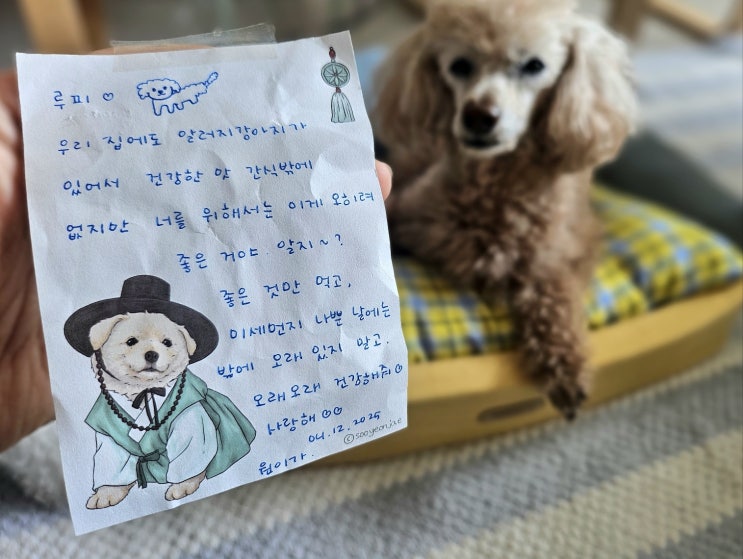 루피 ♡
우리 집에도 알러지강아지가
있어서 건강한 맛 간식밖에
없지만 너를 위해서는 이게 오히려
좋은 거야. 알지~?
좋은 것만 먹고,
미세먼지 나쁜 날에는
밖에 오래 있지 말고.
오래오래 건강해줘♡
사랑해♡♡
04.12.2025
ⓒsooyeon.ixe
뭠이가.